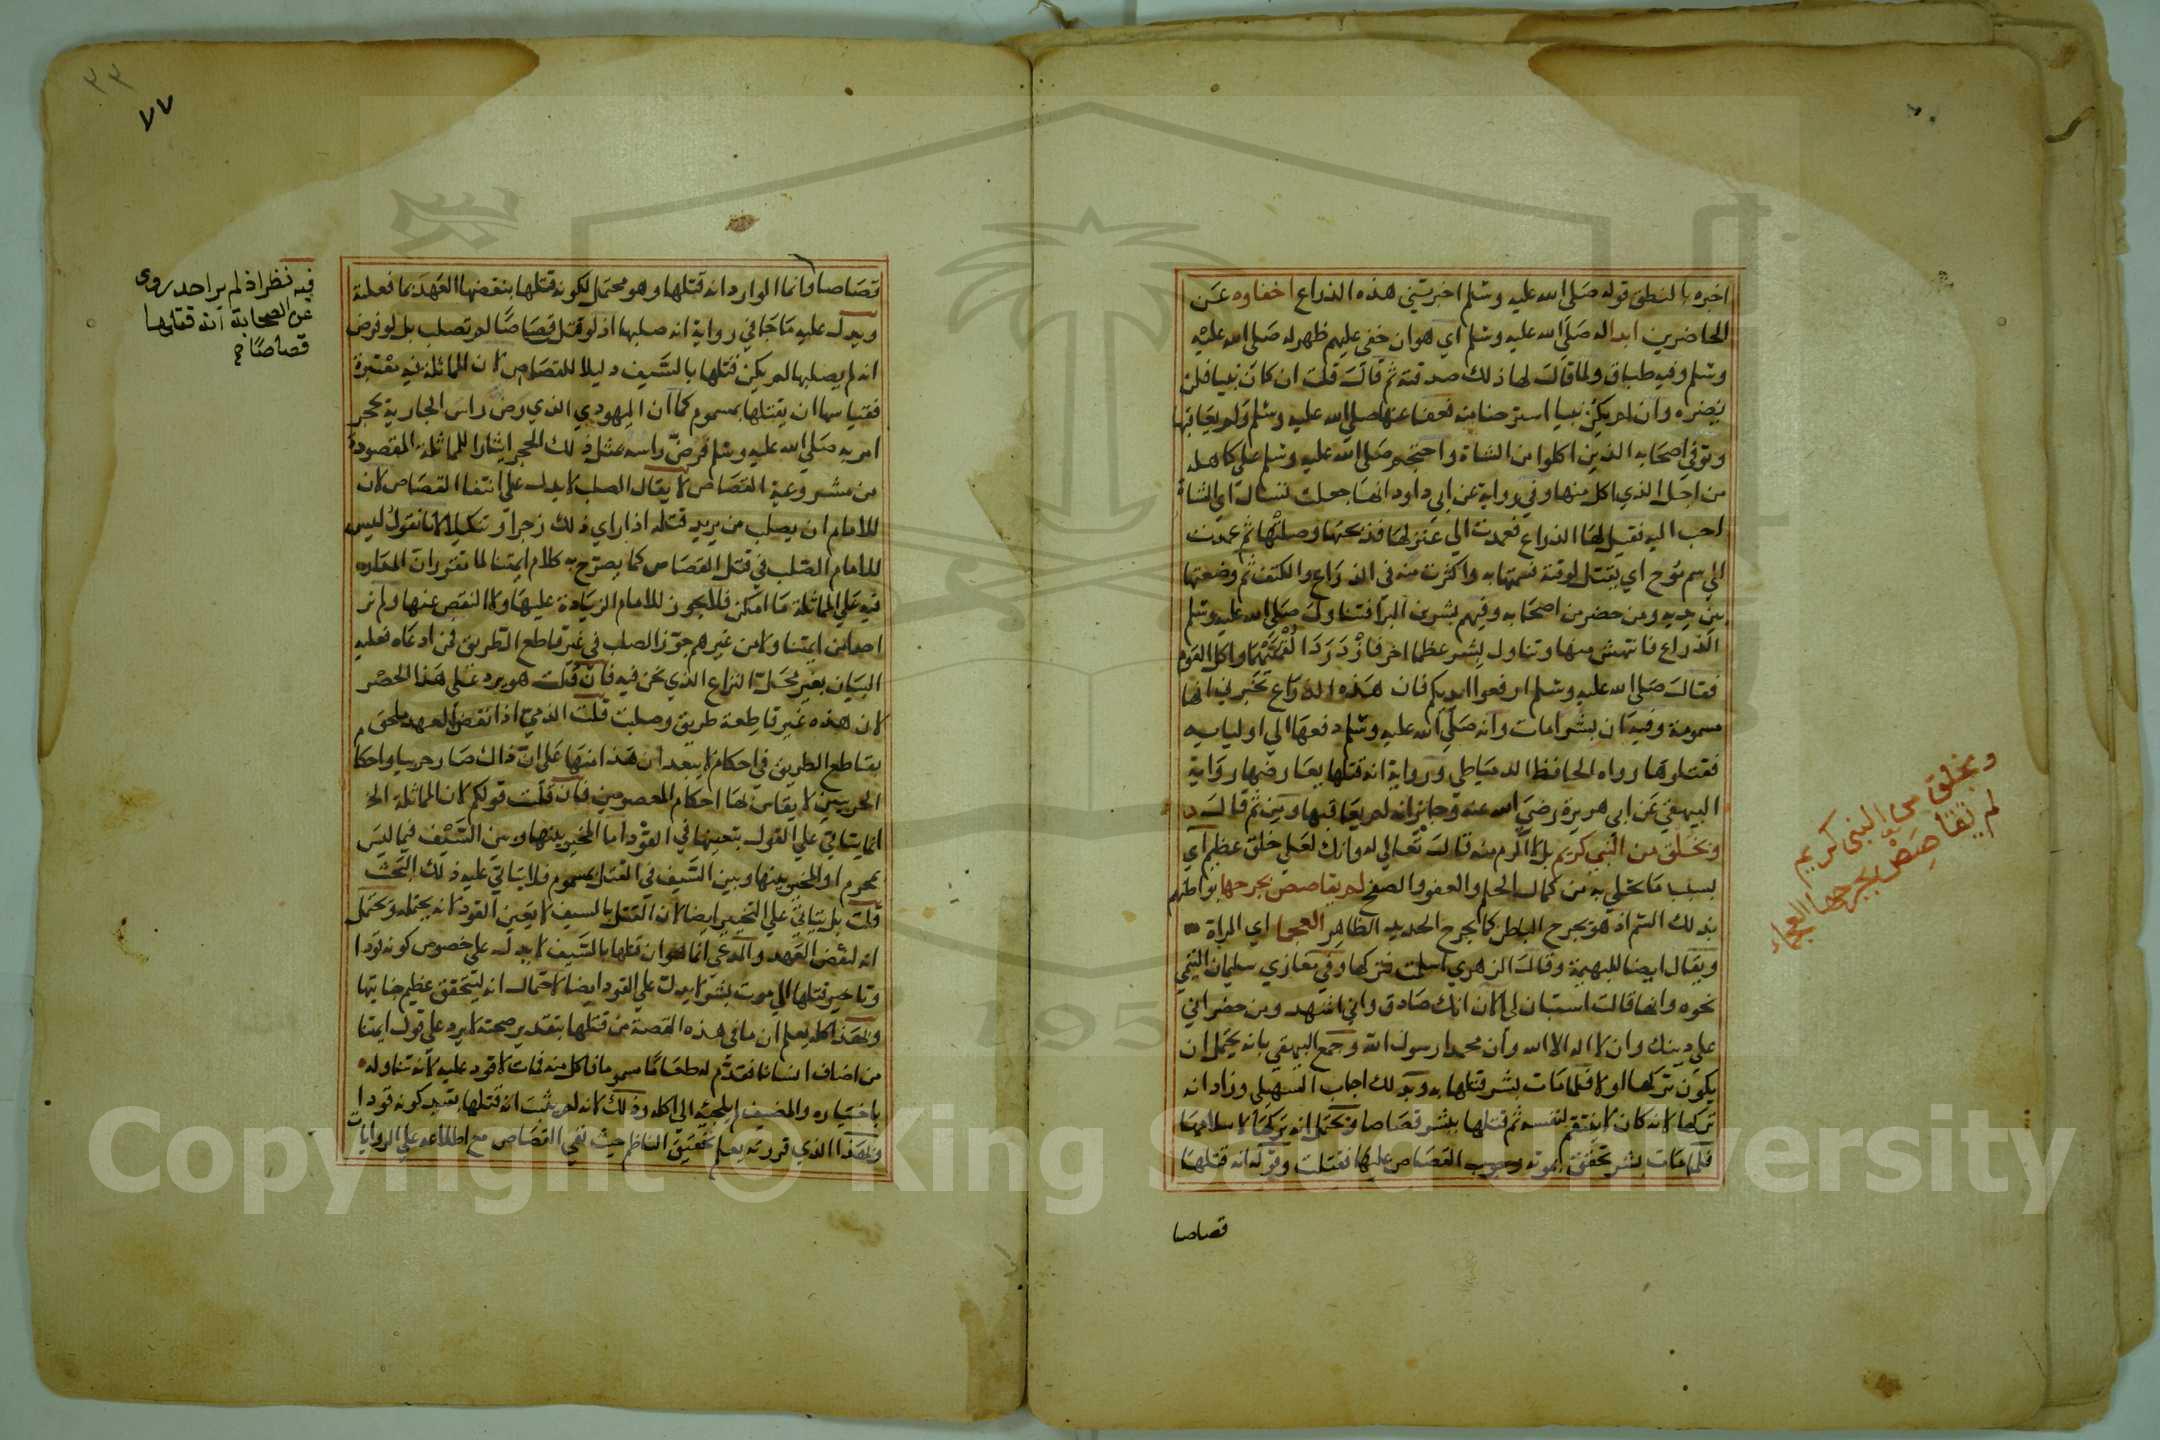 اخبره بالنطق قوله صلى الله عليه وسلم اخبرتني هذه الذراع اخفاوه عن
الحاضرين ابداله صلى الله عليه وسلم اي هوان خفي عليهم ظهر له صلى الله عليه
وسلم وفيه طباق ولما قالت لها ذلك صدقته ثم قالت قلت ان كان نبيا فلن
يضره وان لم يكن نبيا استرحنا منه فعفا عنها صلى الله عليه وسلم ولم يعاقبها
وتوفي اصحابه الذين اكلوا من الشاة واحتجم صلى الله عليه وسلم على كاهله
من اجل الذي اكل منها وفي رواية عن ابي داود انها جعلت تسال اي الشاة
احب اليه فقيل لها الذراع فعمدت الي عنز لها فذبحتها وصلتها ثم عمدت
الي سم نوح اي يقتل لوقته فسمتها به واكثرت منه في الذراع والكتف ثم وضعتها
بين يديه ومن حضر من اصحابه وفيهم بشر بن البرا فتناول صلى الله عليه وسلم
الذراع فانتهش منها وتناول بشر عظما اخر فازدردا لقمتيهما واكل القوم
فقال صلى الله عليه وسلم ارفعوا ايديكم فان هذه الذراع تخبرني انها
مسمومة وفيه ان بشرا مات وانه صلى الله عليه وسلم دفعها الي اوليايه
فقتلوها رواه الحافظ الدمياطي ورواية انه قتلها يعارضها رواية
البيهقي عن ابي هريرة رضي الله عنه وجابر انه لم يعاقبها ومن ثم قال
وبخلق من النبي كريم بل لا اكرم منه قال تعالي له وانك لعلي خلق عظيم اي
بسبب ما تحلي به من كمال الحلم والعفو والصفح لم يقاصص بجرحها بواطنهم
بذلك السم اذ هو يجرح الباطن كما يجرح الحديد الظاهر العجما اي المراة
ويقال ايضا للبهيمة وقال الزهري اسلمت فتركها وفي مغازي سليمان التيمي
نحوه وانها قالت استبان لي الان انك صادق واني اشهد ومن حضر اني
على دينك وان لا اله الا الله وان محمدا رسول الله وجمع البيهقي بانه يحتمل ان
يكون تركها اولا فلما مات بشر قتلها به وبذلك اجاب السهيلي وزاد انه
تركها لانه كان لا ينتقم لنفسه ثم قتلها ببشر قصاصا ويحتمل انه تركها لاسلامها
فلما مات بشر تحقق بموته وجوب القصاص عليها فقتلت وقوله انه قتلها
قصاصا
وبخلق من النبي كريم
لم تقاصص بجرحها العجماء
٣٣
٧٧
قصاصا وانما الوارد انه قتلها وهو محتمل لكونه قتلها بنقضها العهد بما فعلته
ويدل عليه ما جا في رواية انه صلبها اذ لو قتل قصاصا لم تصلب بل لو فرض
انه لم يصلبها لم يكن قتلها بالسيف دليلا للقصاص لان المماثلة فيه معتبرة
فقياسها ان يقتلها بمسموم كما ان اليهودي الذي رض راس الجارية بحجر
امر به صلى الله عليه وسلم فرض راسه بمثل ذلك الحجر ايثارا للمماثلة المقصودة
من مشروعية القصاص لا يقال الصلب لا يدل علي انتفا القصاص لان
للامام ان يصلب من يريد قتله اذا راي ذلك زجرا وتنكيلا لانا نقول ليس
للامام الصلب في قتل القصاص كما يصرح به كلام ايمتنا لما تقرر ان المدار
فيه علي المماثلة ما امكن فلا يجوز للامام الزيادة عليها ولا النقص عنها ولم نر
احدا من ايمتنا ولا من غيرهم جوز الصلب في غير قاطع الطريق فمن ادعاه فعليه
البيان بغير محل النزاع الذي نحن فيه فان قلت هو يرد علي هذا الحصر
لان هذه غير قاطعة طريق وصلبت قلت الذمي اذا نقض العهد ملحق
بقاطع الطريق في احكام لا يبعد ان هذا منها علي ان ذاك صار حربيا واحكا م
الحربيين لا يقاس لها احكام المعصومين فان قلت قولكم لان المماثلة الخ
انما يتاتي علي القول بتعينها في القود اما المخير بينها وبين السيف فيما ليس
بمحرم او المخير بينها وبين السيف في القتل بمسموم فلا يتاتي عليه ذلك البحث
قلت بل يتاتي علي التخيير ايضا لان القتل بالسيف لا يعين القود لانه يحتمله ويحتمل
انه لنقض العهد والمدعي انما هو ان قتلها بالسيف لا يدل علي خصوص كونه قودا
وتاخير قتلها الي موت بشر لا يدل علي القود ايضا لاحتمال انه ليتحقق عظيم جنايتها
وبهذا كله يعلم ان ما في هذه القصة من قتلها بتقدير صحته لا يرد علي قول ايمتنا
من اضاف انسانا فقدم له طعاما مسموما فاكل منه فمات لا قود عليه لانه تناوله
باختياره والمضيف لم يلجئه الي اكله وذلك لانه لم يثبت انه قتلها بقيد كونه قودا
وبهذا الذي قررته يعلم تحقيق الناظم حيث نفي القصاص مع اطلاعه علي الروايات
فيه نظر اذ لم ير احد روى
عن الصحابة انه قتلها
قصاصا